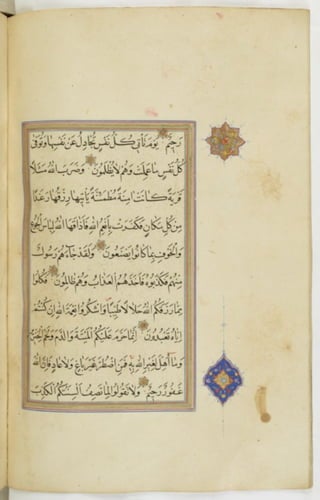 رَحِيمٌ يَوْمَ تَأْتِي كُلُّ نَفْسٍ تُجَادِلُ عَنْ نَفْسِهَا وَتُوَفَّى
كُلُّ نَفْسٍ مَا عَمِلَتْ وَهُمْ لَا يُظْلَمُونَ وَضَرَبَ اللَّهُ مَثَلًا
قَرْيَةً كَانَتْ آمِنَةً مُطْمَئِنَّةً يَأْتِيهَا رِزْقُهَا رَغَدًا
مِنْ كُلِّ مَكَانٍ فَكَفَرَتْ بِأَنْعُمِ اللَّهِ فَأَذَاقَهَا اللَّهُ لِبَاسَ الْجُوعِ
وَالْخَوْفِ بِمَا كَانُوا يَصْنَعُونَ وَلَقَدْ جَاءَهُمْ رَسُولٌ
مِنْهُمْ فَكَذَّبُوهُ فَأَخَذَهُمُ الْعَذَابُ وَهُمْ ظَالِمُونَ فَكُلُوا
مِمَّا رَزَقَكُمُ اللَّهُ حَلَالًا طَيِّبًا وَاشْكُرُوا نِعْمَةَ اللَّهِ إِنْ كُنْتُمْ
إِيَّاهُ تَعْبُدُونَ إِنَّمَا حَرَّمَ عَلَيْكُمُ الْمَيْتَةَ وَالدَّمَ وَلَحْمَ الْخِنْزِيرِ
وَمَا أُهِلَّ لِغَيْرِ اللَّهِ بِهِ فَمَنِ اضْطُرَّ غَيْرَ بَاغٍ وَلَا عَادٍ فَإِنَّ اللَّهَ
غَفُورٌ رَحِيمٌ وَلَا تَقُولُوا لِمَا تَصِفُ أَلْسِنَتُكُمُ الْكَذِبَ